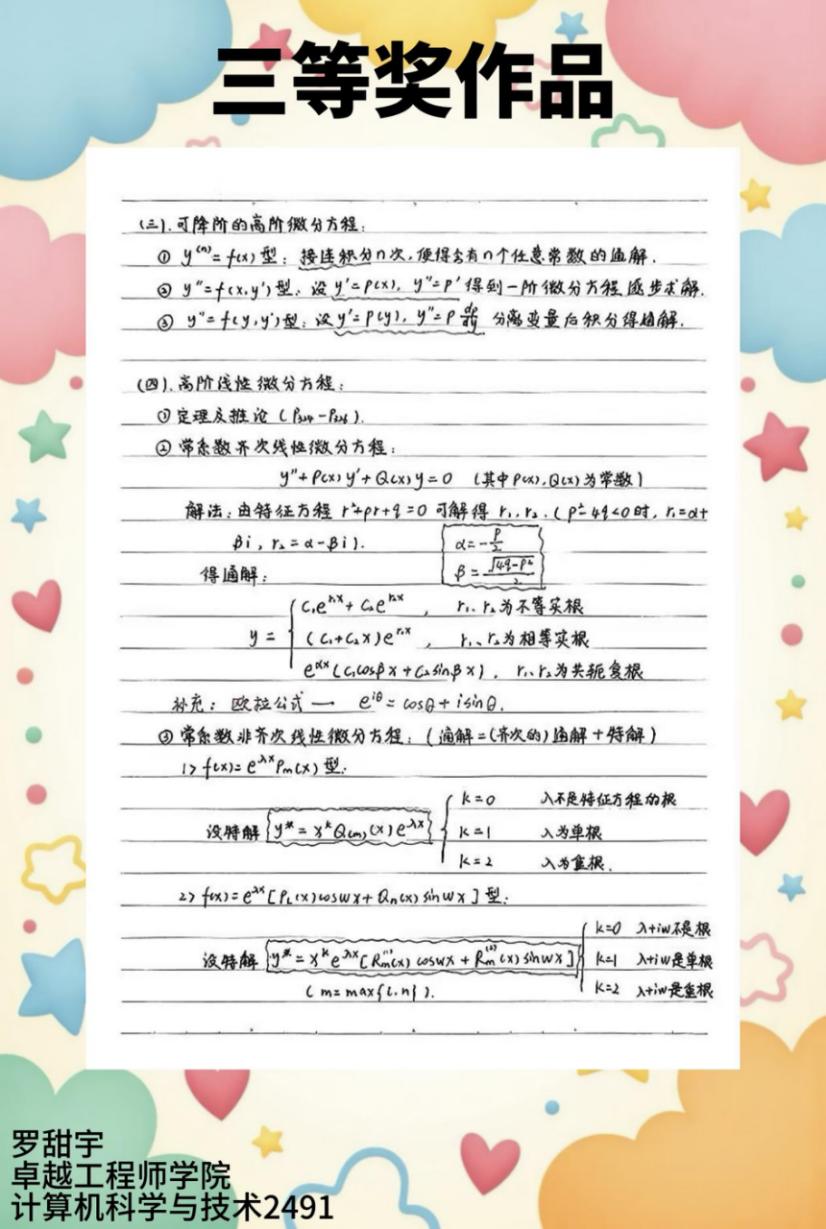 三等奖作品
(三).可降阶的高阶微分方程:
① y⁽ⁿ⁾=f(x)型: 接连积分n次,便得含有n个任意常数的通解.
② y''=f(x,y')型: 设y'=P(x), y''=P' 得到一阶微分方程逐步求解.
③ y''=f(y,y')型: 设y'=P(y), y''=P dp/dy 分离变量后积分得通解.
(四).高阶线性微分方程:
① 定理及推论
② 常系数齐次线性微分方程:
y''+P(x)y'+Q(x)y=0 (其中P(x),Q(x)为常数)
解法:由特征方程 r²+pr+q=0 可解得 r₁,r₂.(p²-4q<0时, r₁=α+
βi, r₂=α-βi).
α=-p/2
β=√(4q-p²)/2
得通解:
y=
C₁e^(r₁x)+C₂e^(r₂x), r₁、r₂为不等实根
(C₁+C₂x)e^(r₁x), r₁、r₂为相等实根
e^(αx)(C₁cosβx+C₂sinβx), r₁、r₂为共轭复根
补充: 欧拉公式 — e^(iθ)=cosθ+isinθ.
③ 常系数非齐次线性微分方程:(通解=(齐次的)通解+特解)
1> f(x)=e^(λx)Pm(x)型:
设特解 y*=x^k Q(m)(x)e^(λx)
k=0 λ不是特征方程的根
k=1 λ为单根
k=2 λ为重根.
2> f(x)=e^(λx)[P_L(x)coswx+Qn(x)sinwx]型:
设特解 y*=x^k e^(λx)[Rm⁽¹⁾(x)coswx+Rm⁽²⁾(x)sinwx]
k=0 λ+iw不是根
k=1 λ+iw是单根
k=2 λ+iw是重根
(m=max{l,n}).
罗甜宇
卓越工程师学院
计算机科学与技术2491